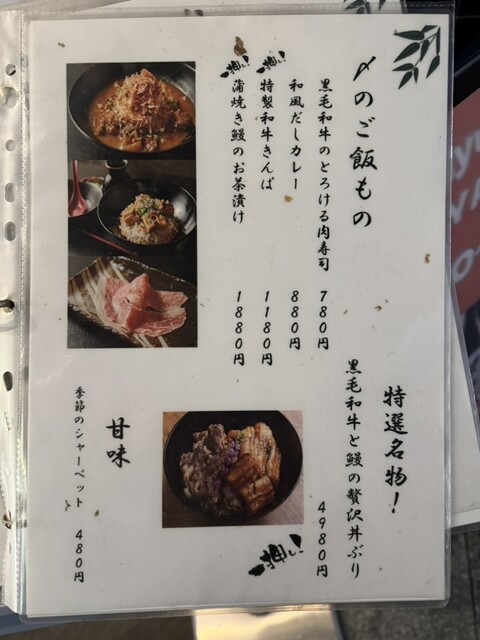 〆のご飯もの
黒毛和牛のとろける肉寿司 780円
和風だしカレー 880円
一押し!
特製和牛きんぱ 1180円
一押し!
蒲焼き鰻のお茶漬け 1880円
特選名物!
黒毛和牛と鰻の贅沢丼ぶり
4980円
一押し!
甘味
季節のシャーベット 480円